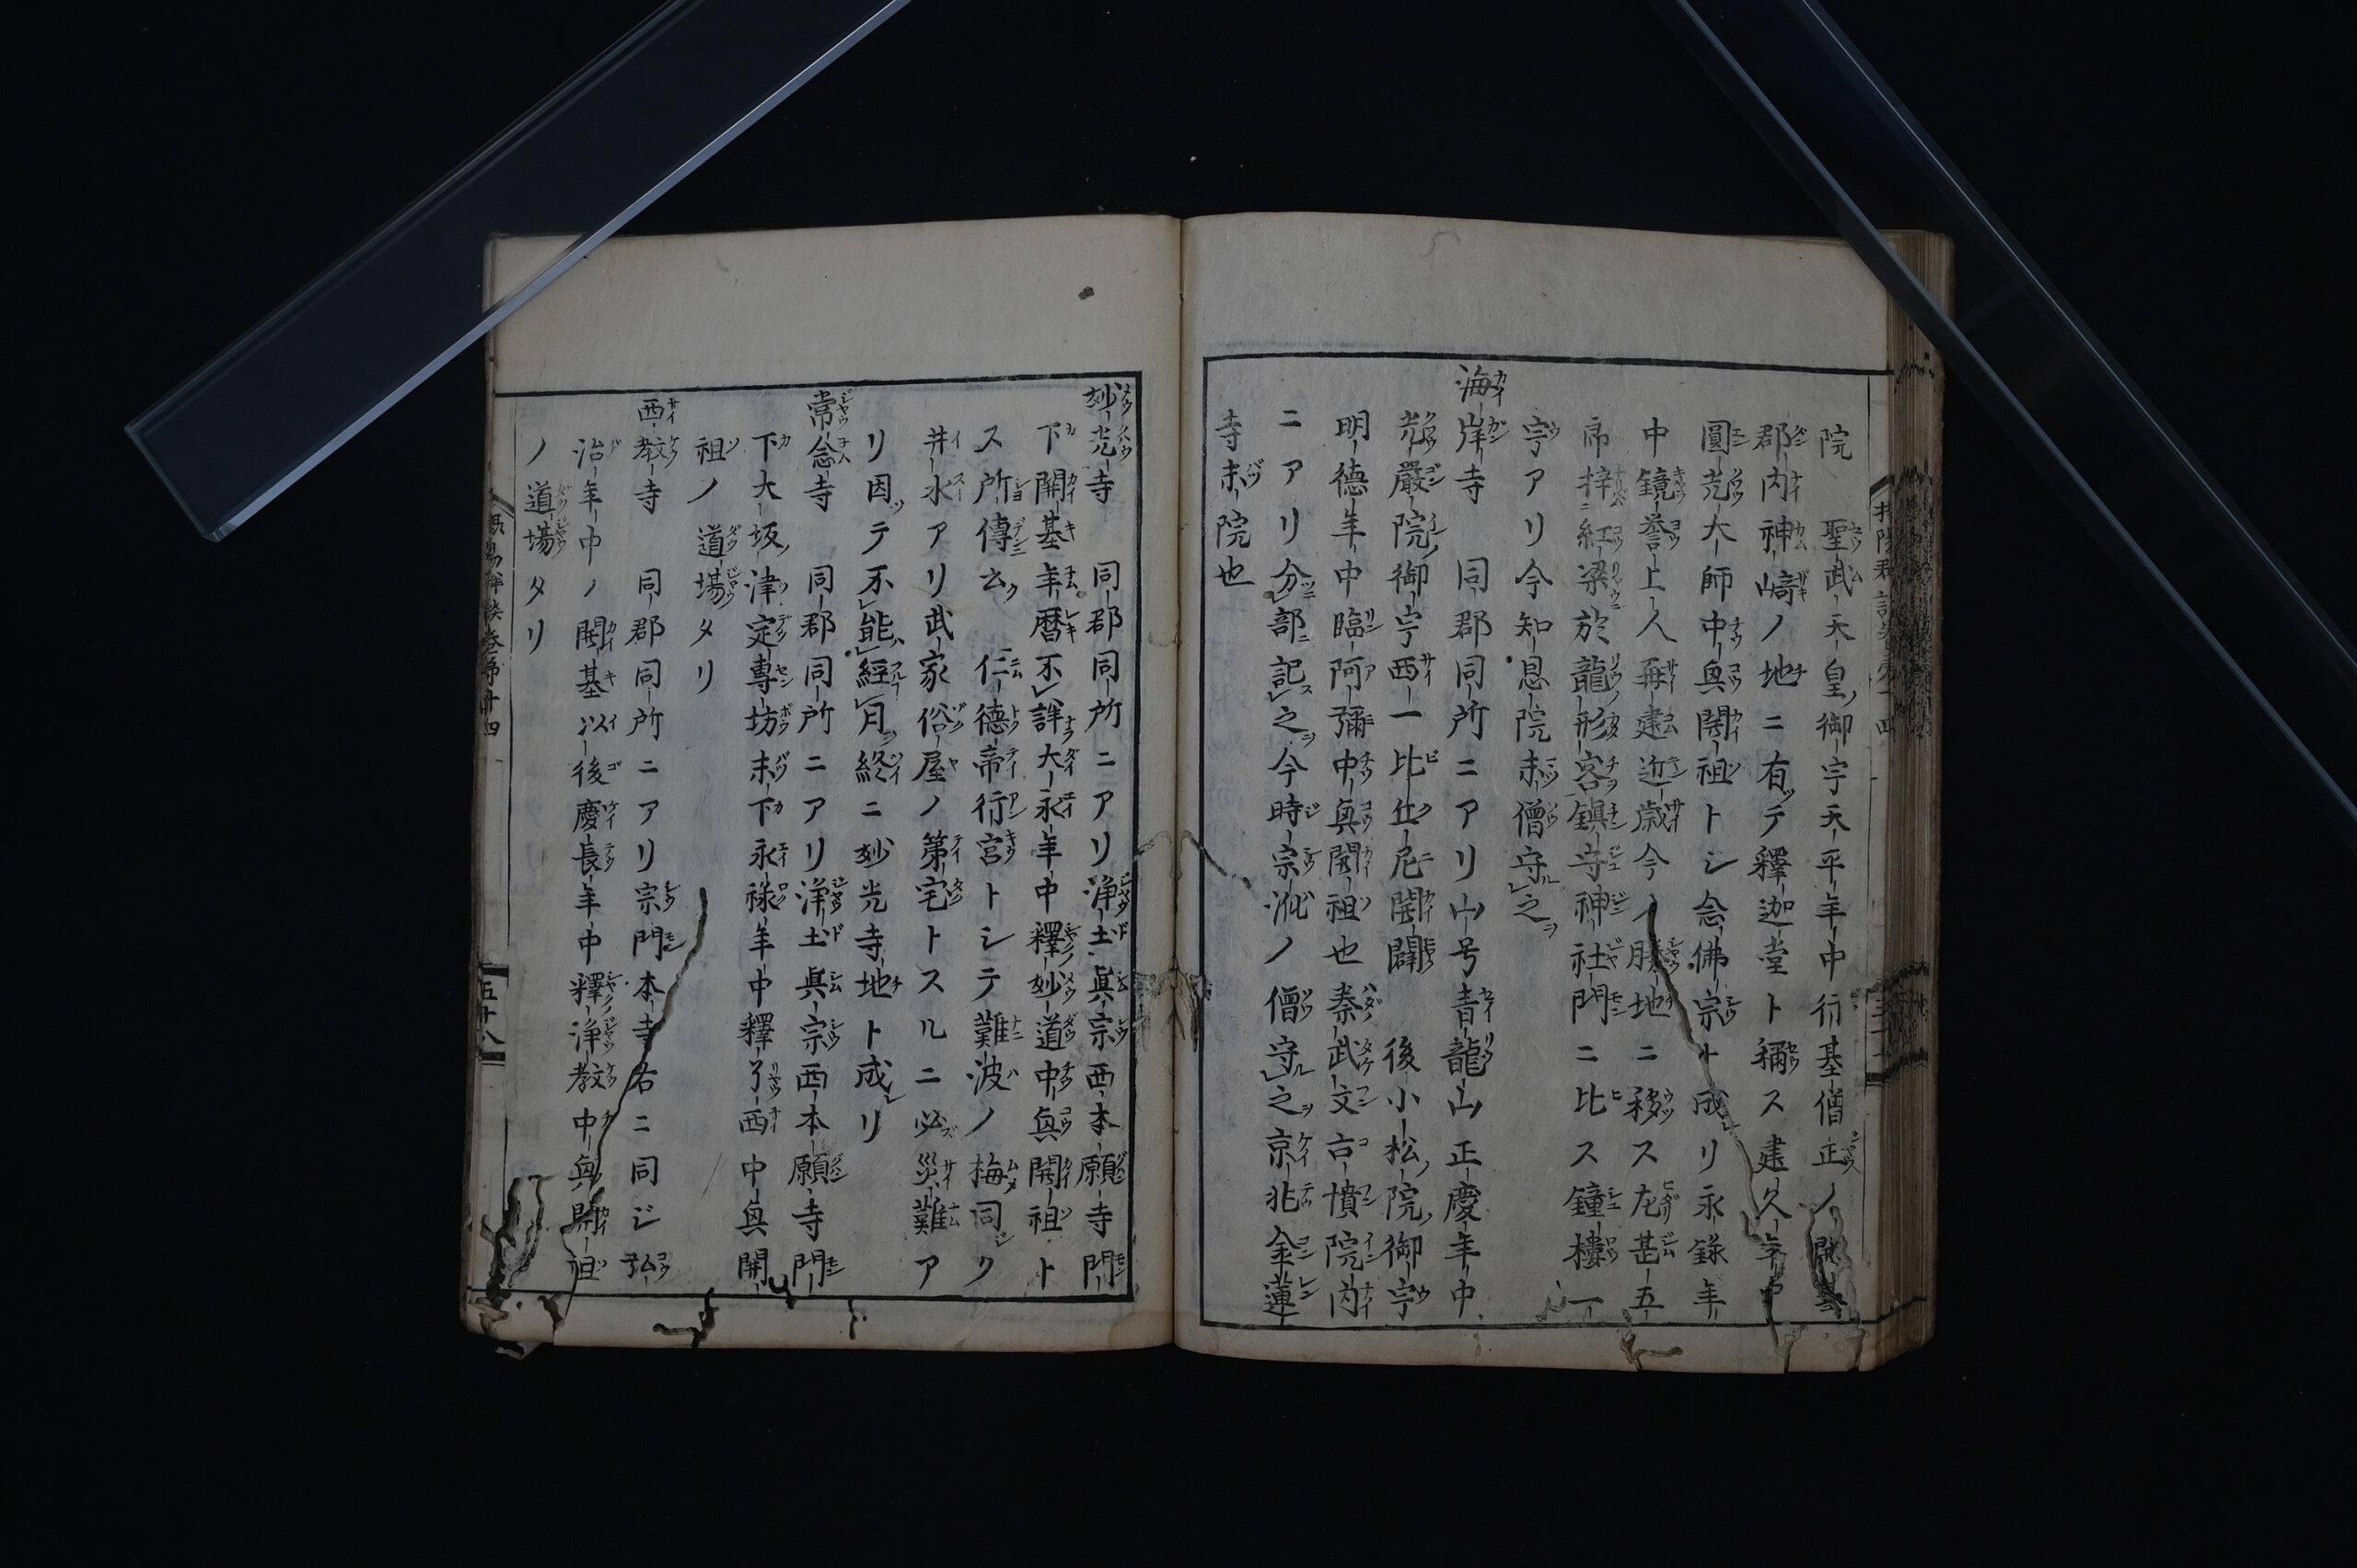 院 聖武天皇ノ御宇天平年中行基僧正ノ開基
郡内神﨑ノ地ニ有テ釋迦堂ト稱ス建久年中
圓光大師中興開祖トシ念佛宗ト成リ永録年
中鏡誉上人再建近歳今ノ勝地ニ移ス左甚五
梓ニ紅梁於龍形客鎮守神社門ニ比ス鐘樓一
宇アリ今知恩院末僧守之
海岸寺 同郡同所ニアリ山号青龍山正慶年中
光嚴院ノ御宇西一比丘尼開闢 後小松ノ院ノ御宇
明德年中臨阿彌中興開祖也秦武文古墳院内
ニアリ分部ニ記之今時宗派ノ僧守之京兆金蓮
寺末院也
妙光寺 同郡同所ニアリ浄土眞宗西本願寺門
下開基年曆不詳大永年中釋妙道中興開祖ト
ス所傳云ク 仁德帝行宮トシテ難波ノ梅同ジク
井水アリ武家俗屋ノ第宅トスルニ必災難ア
リ因テ不能經月終ニ妙光寺地ト成レリ
常念寺 同郡同所ニアリ浄土眞宗西本願寺門
下大坂ノ津定專坊末下永禄年中釋了西中興開
祖ノ道場タリ
西教寺 同郡同所ニアリ宗門本寺右ニ同ジ弘
治年中ノ開基以後慶長年中釋浄教中興開祖
ノ道場タリ
五十八